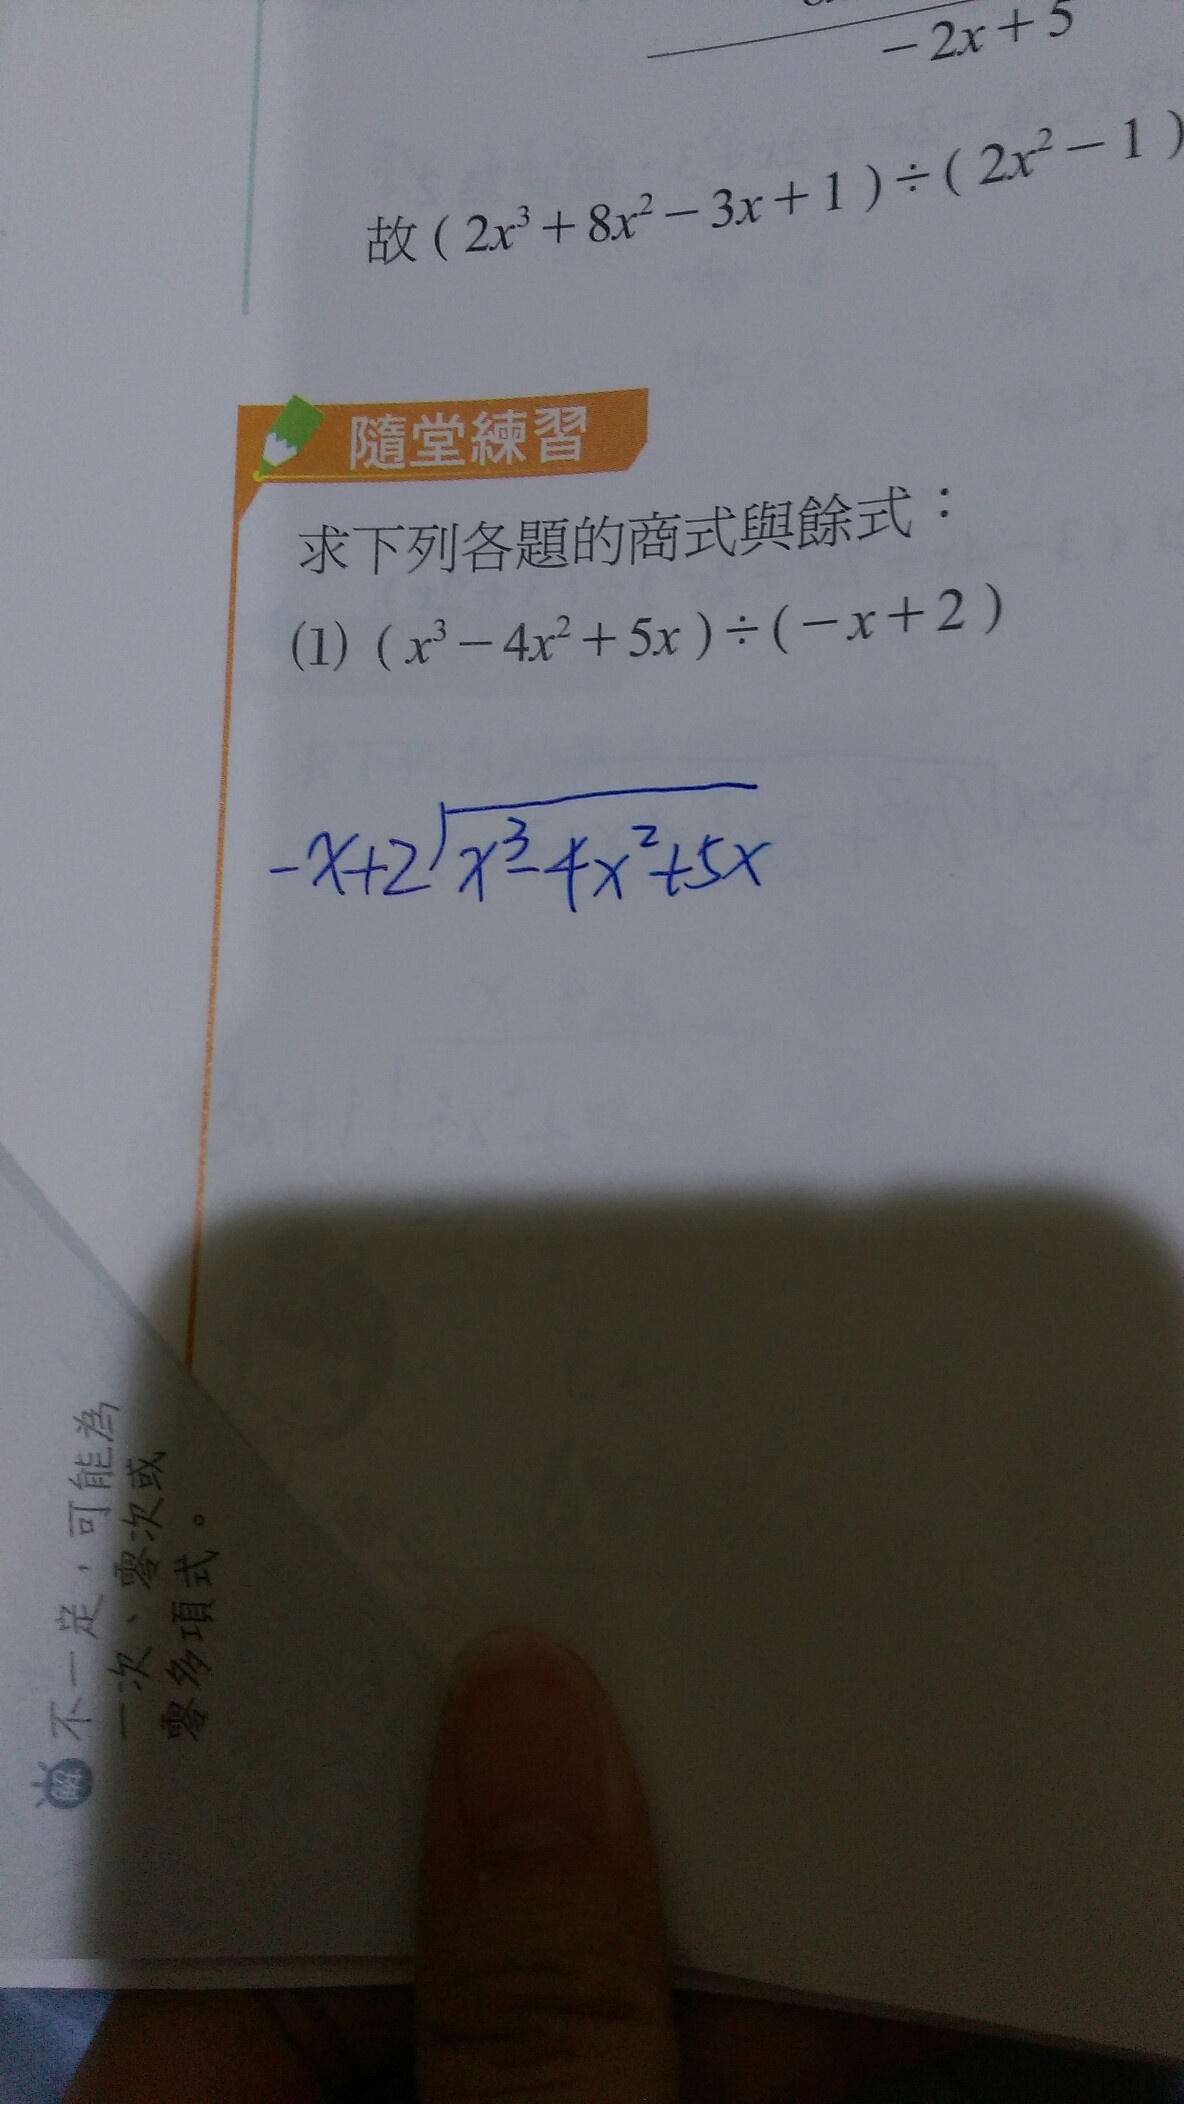 -2x+5
故(2x³+8x²-3x+1)÷(2x²-1)
隨堂練習
求下列各題的商式與餘式：
(1) (x³-4x²+5x)÷(-x+2)
-x+2 x³-4x²+5x
不一定，可能為
一次、零次或
零多項式。